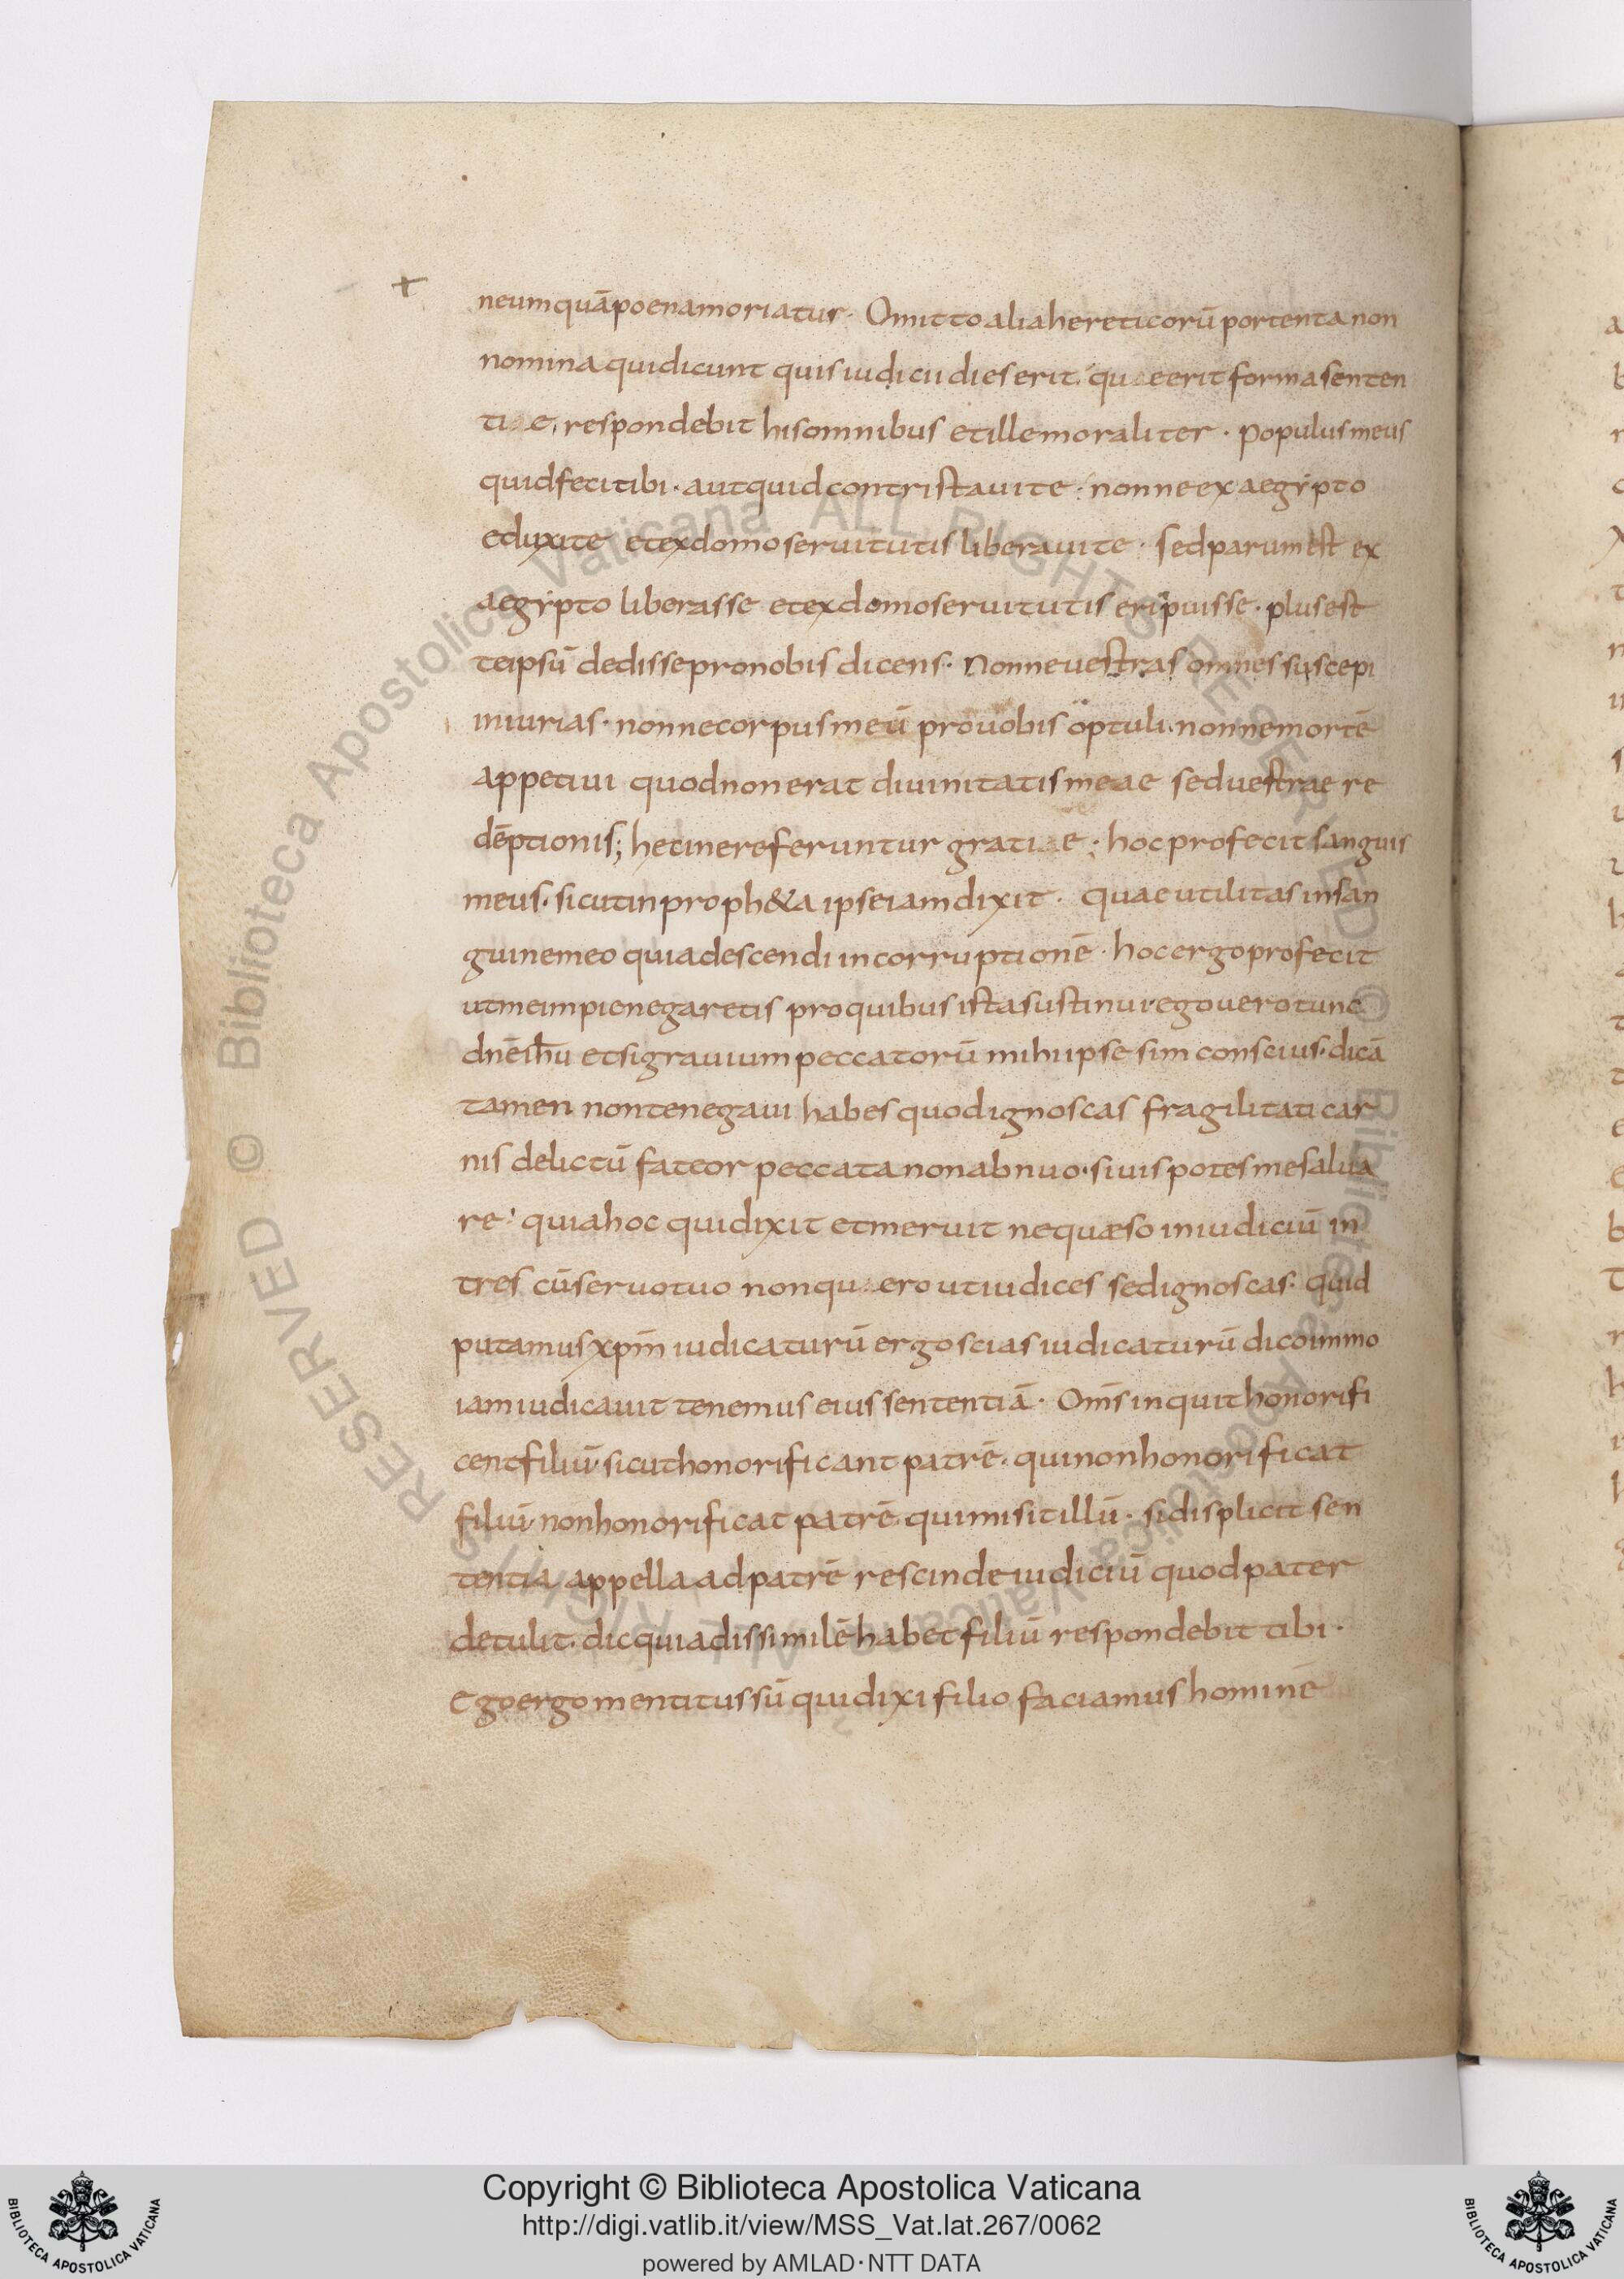 neumquāpoenamoriatur· Omittoaliahereticorū portenta non
nomina quidicunt quisiudicii dieserit. quaeerit forma senten
tiae, respondebit hisomnibus etillemoraliter · populusmeus
quidfecitibi· autquidcontristauite· nonneexaegypto
eduxite etexdomoseruitutis liberauite· sedparumest ex
aegypto liberasse etexdomoseruitutis eripuisse· plusest
teipsū dedissepronobis dicens· Nonneuestras omnes suscepi
iniurias· nonnecorpusmeū prouobis optuli. nonnemortē
appetiui quodnonerat diuinitatismeae seduestrae re
dēptionis; hecinereferuntur gratiae· hocprofecit sanguis
meus· sicutinproph&a ipseiamdixit· quaeutilitas insan
guinemeo quiadescendi incorruptionē· hocergoprofecit
utmeimpienegaretis proquibus istasustinui·egouerotunc
dnēihū etsigrauium peccatorū mihiipse sim conscius· dicā
tamen nontenegaui habes quodignoscas fragilitati car
nis delictū fateor peccata nonabnuo· siuispotesmesalua
re· quiahoc quidixit etmeruit nequæso iniudiciū in
tres cūseruotuo nonquaero utiudices sedignoscas· quid
putamusxpm̄ iudicaturū ergo scias iudicaturū dicoimmo
iamiudicauit tenemus eius sententiā· Om̄s inquit honorifi
centfiliū sicuthonorificant patrē. quinonhonorificat
filiū nonhonorificat patrē quimisitillū· sidisplicit sen
tentia appella adpatrē rescindeiudiciū quodpater
detulit· dicquiadissimilē habetfiliū respondebit tibi·
Egoergomentitussū quidixi filio faciamus hominē
Copyright © Biblioteca Apostolica Vaticana
http://digi.vatlib.it/view/MSS_Vat.lat.267/0062
powered by AMLAD·NTT DATA
BIBLIOTECA APOSTOLICA VATICANA
BIBLIOTECA APOSTOLICA VATICANA